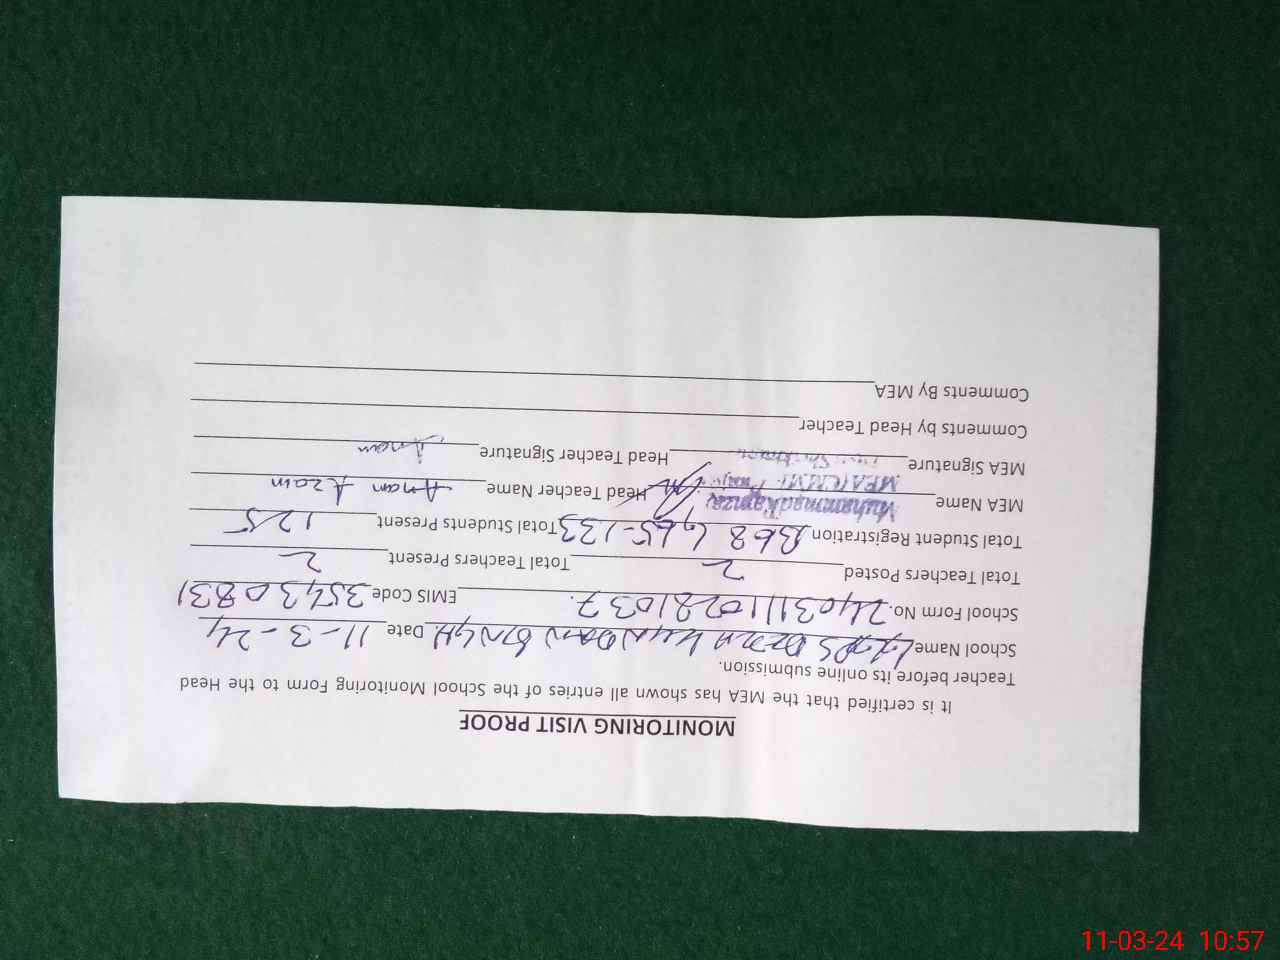 MONITORING VISIT PROOF
It is certified that the MEA has shown all entries of the School Monitoring Form to the Head
Teacher before its online submission.
School Name DERA KUNDAN SINGH Date 11-3-24
School Form No. 24031110281037. EMIS Code 35430831
Total Teachers Posted 2 Total Teachers Present 2
Total Student Registration 133 Total Students Present 125
MEA Name Muhammad Ramzan Head Head Teacher Name Anam Azam
MEA Signature Head Teacher Signature Anam
Comments by Head Teacher
Comments By MEA
11-03-24 10:57